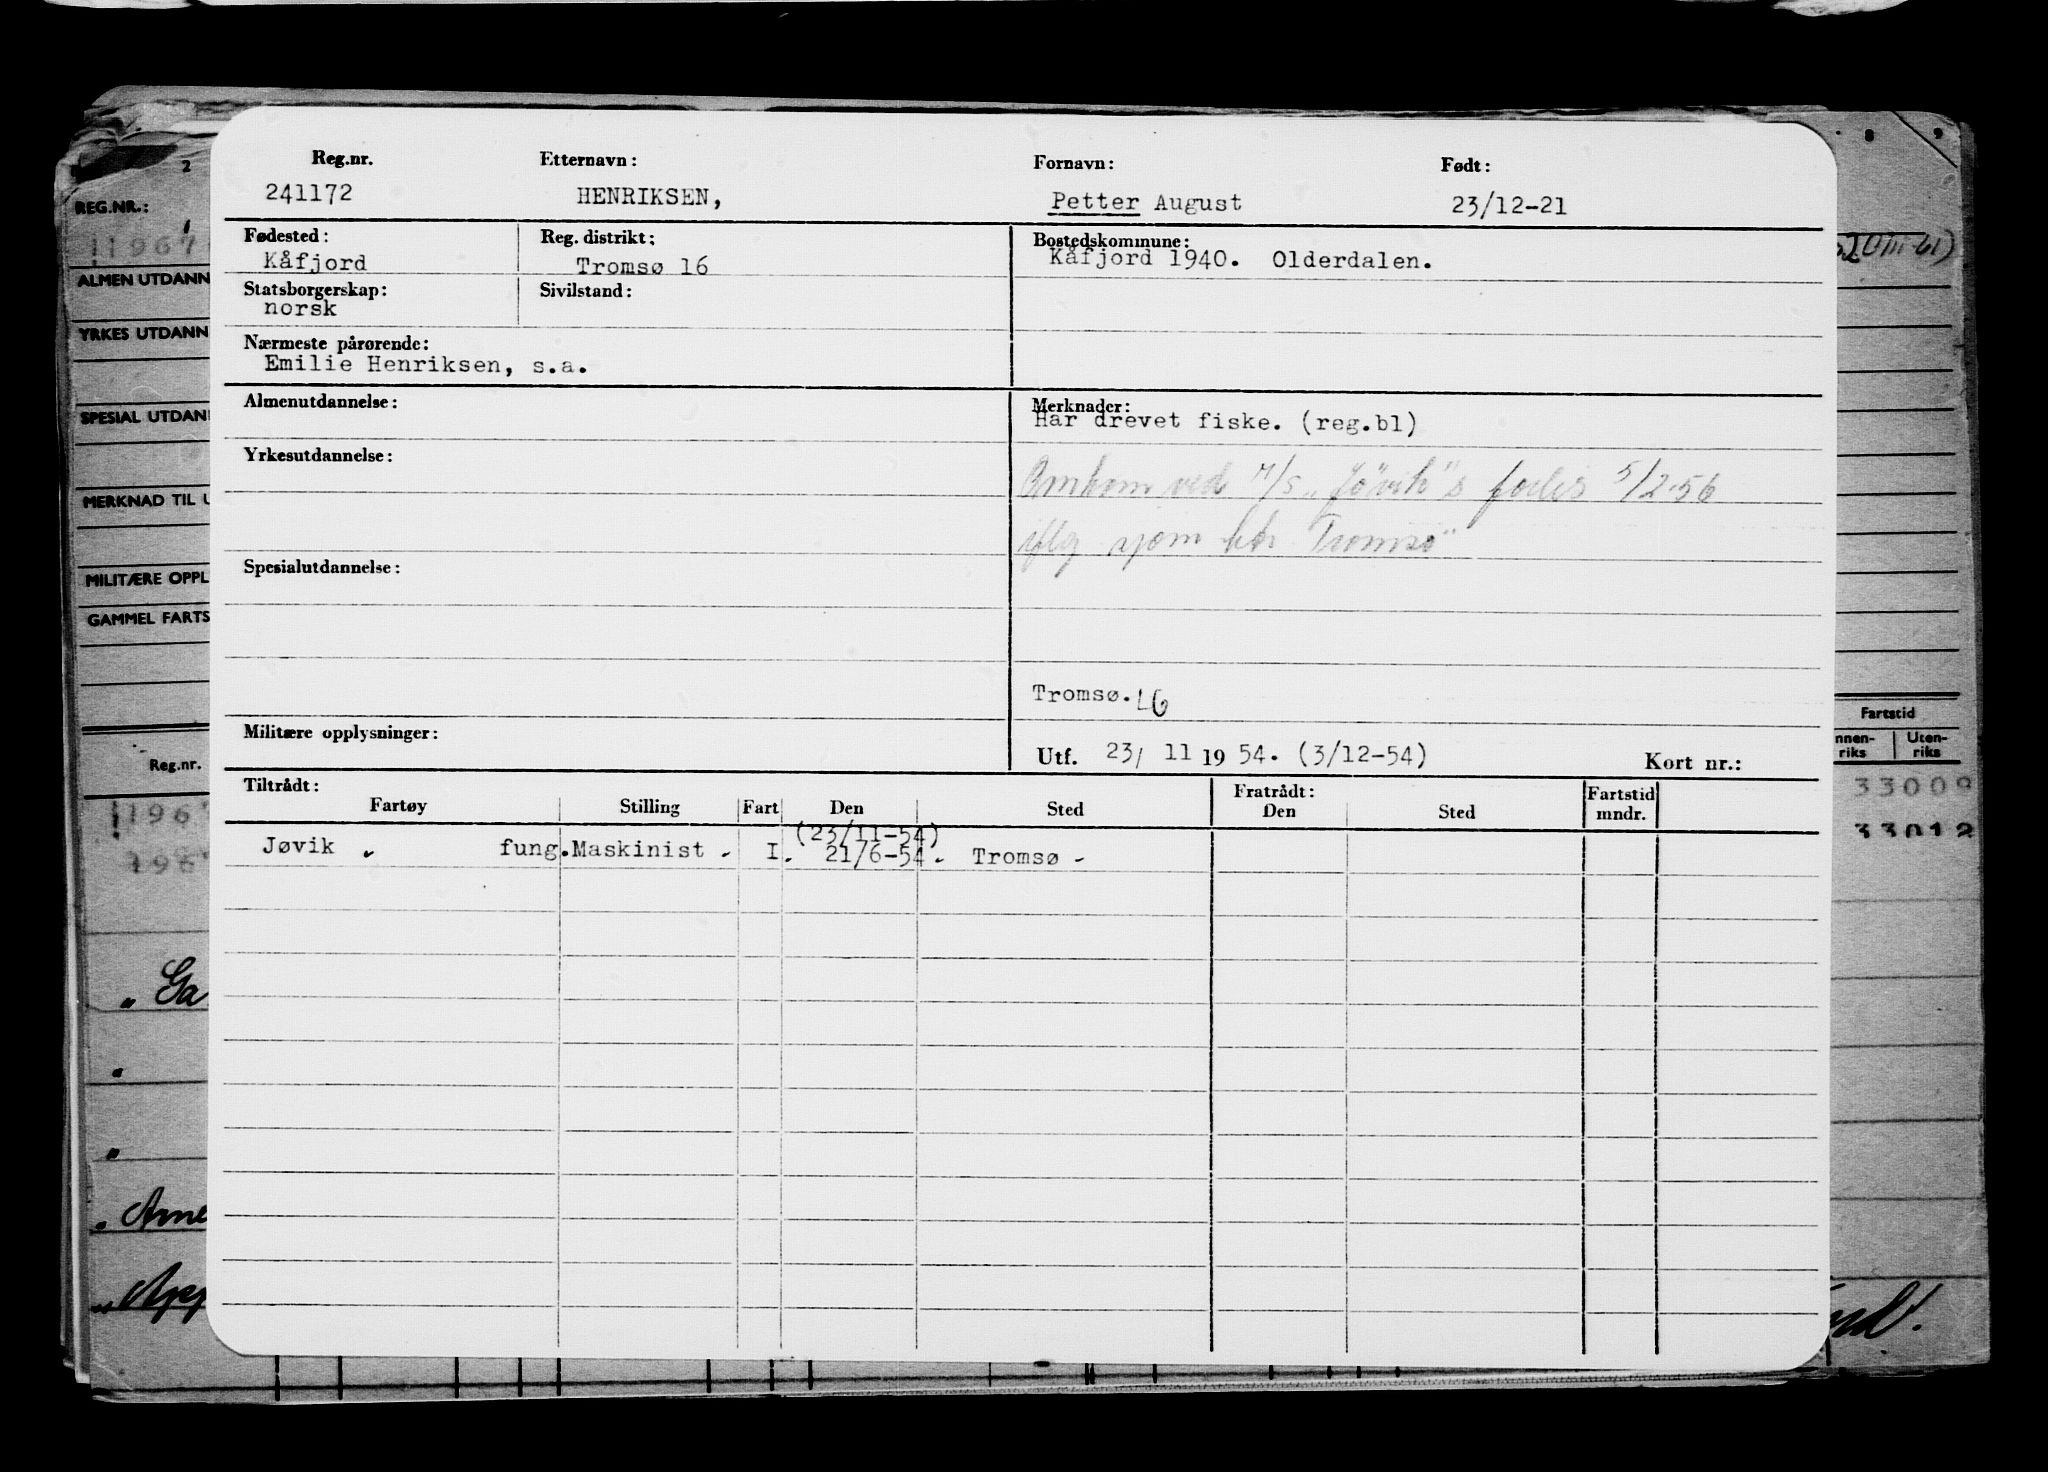 Reg.nr. Etternavn: Fornavn: Født:
241172 HENRIKSEN, Petter August 23/12-21
Fødested: Reg. distrikt: Bostedskommune:
Kåfjord Tromsø 16 Kåfjord 1940. Olderdalen.
Statsborgerskap: Sivilstand:
norsk
Nærmeste pårørende:
Emilie Henriksen, s.a.
Almenutdannelse: Merknader:
Har drevet fiske. (reg.bl)
Yrkesutdannelse:
Omkom ved M/S "Jøvik"s forlis 5/2-56
iflg sjøm ktr Tromsø
Spesialutdannelse:
Tromsø. 16
Militære opplysninger:
Utf. 23/ 11 19 54. (3/12-54) Kort nr.:
Tiltrådt: Fratrådt:
Fartøy Stilling Fart Den Sted Den Sted Fartstid mndr.
(23/11-54)
Jøvik fung. Maskinist I. 21/6-54 Tromsø
2
REG.NR.:
1967
ALMEN UTDANN
YRKES UTDANN
SPESIAL UTDAN
MERKNAD TIL U
MILITÆRE OPPL
GAMMEL FARTS
Reg.nr.
1967
196
" Ga
"
"
" Arne
" App
8 9
Fartstid
nnen-riks Uten-riks
33009
33012